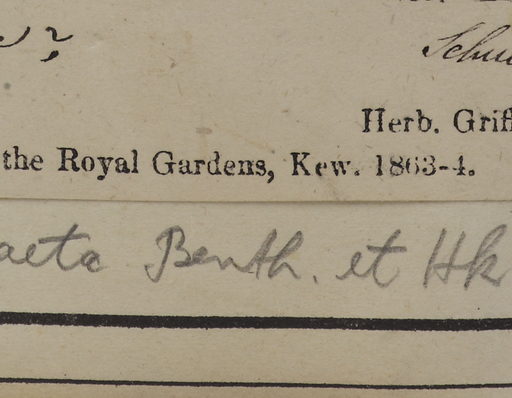 Herb. Griff
the Royal Gardens, Kew. 1863-4.
aeta Benth. et Hk